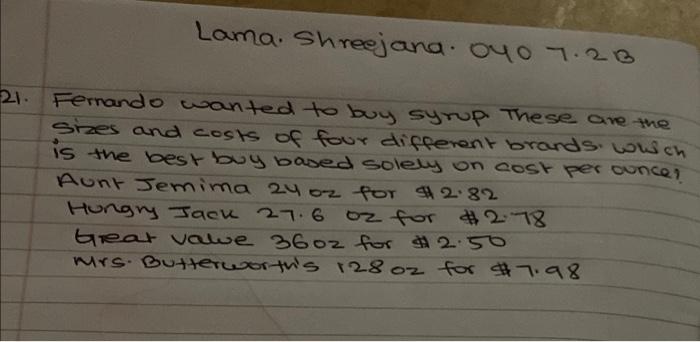 Lama. Shreejana. 040 7.2B
21. Fernando wanted to buy syrup. These are the
sizes and costs of four different brands. which
is the best buy based solely on cost per ounce?
Aunt Jemima 24 oz for $2.82
Hungry Jack 27.6 oz for $2.78
Great value 36oz for $2.50
Mrs. Butterworth's 128 oz for $7.98